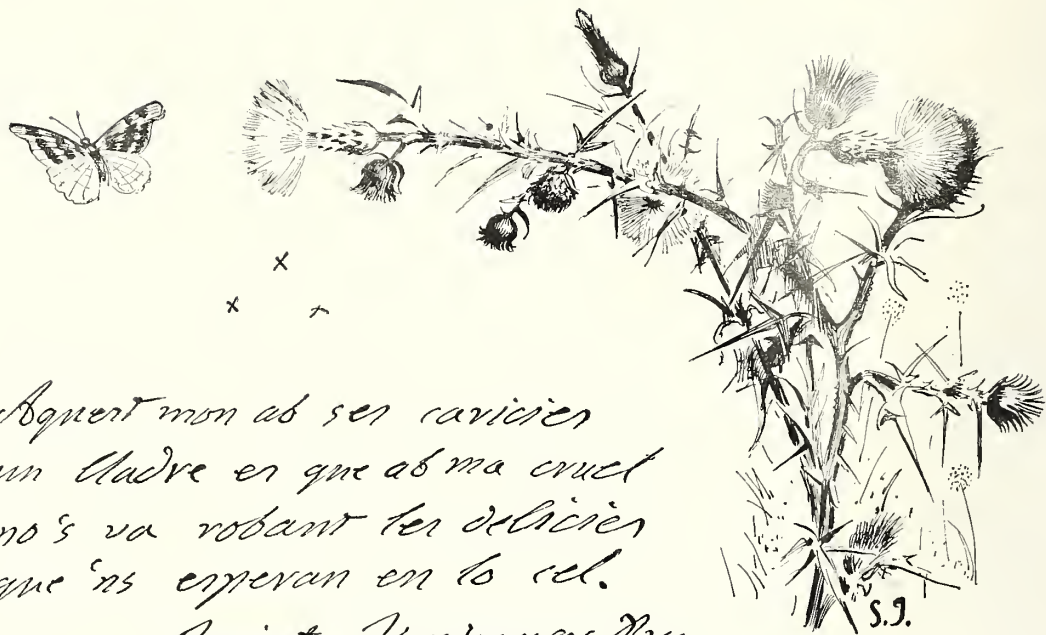 Aquest mon ab ses caricies
un lladre es que ab ma cruel
no's va robant les delicies
que 'ns esperan en lo cel.
Jacinto Verdaguer Pbre
S.J.